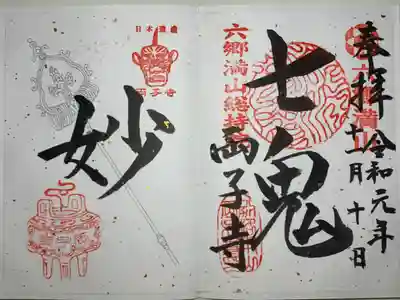 奉拝
令和元年
十一月十日
七鬼
六郷満山総持院
両子寺
妙
両子寺